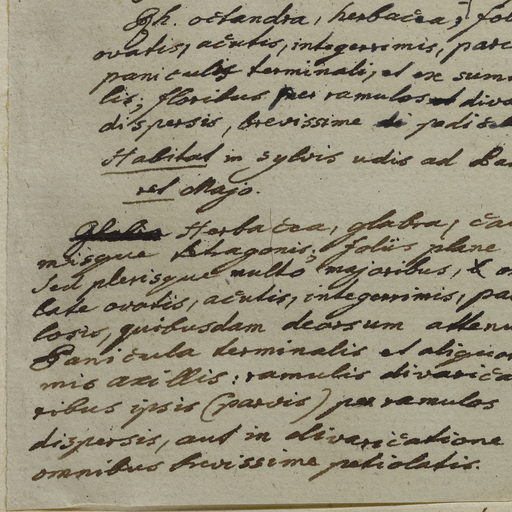 Rh. octandra, herbacea; fol
ovatis, acutis, integerrimis, parc
panicula terminali, et ex sum
lis, floribus per ramulos diva
dispersis, brevissime pedicel
Habitat in sylvis udis ad Ban
Majo.
Herbacea, glabra, ca
misque tetragonis; foliis plane
sed plerisque multo majoribus, & o
late ovatis, acutis, integerrimis, pa
losis, quibusdam deorsum attenu
Panicula terminalis et aliquo
mis axillis: ramulis divarica
ribus ipsis (parvis) per ramulos
dispersis, aut in divaricatione
omnibus brevissime petiolatis.